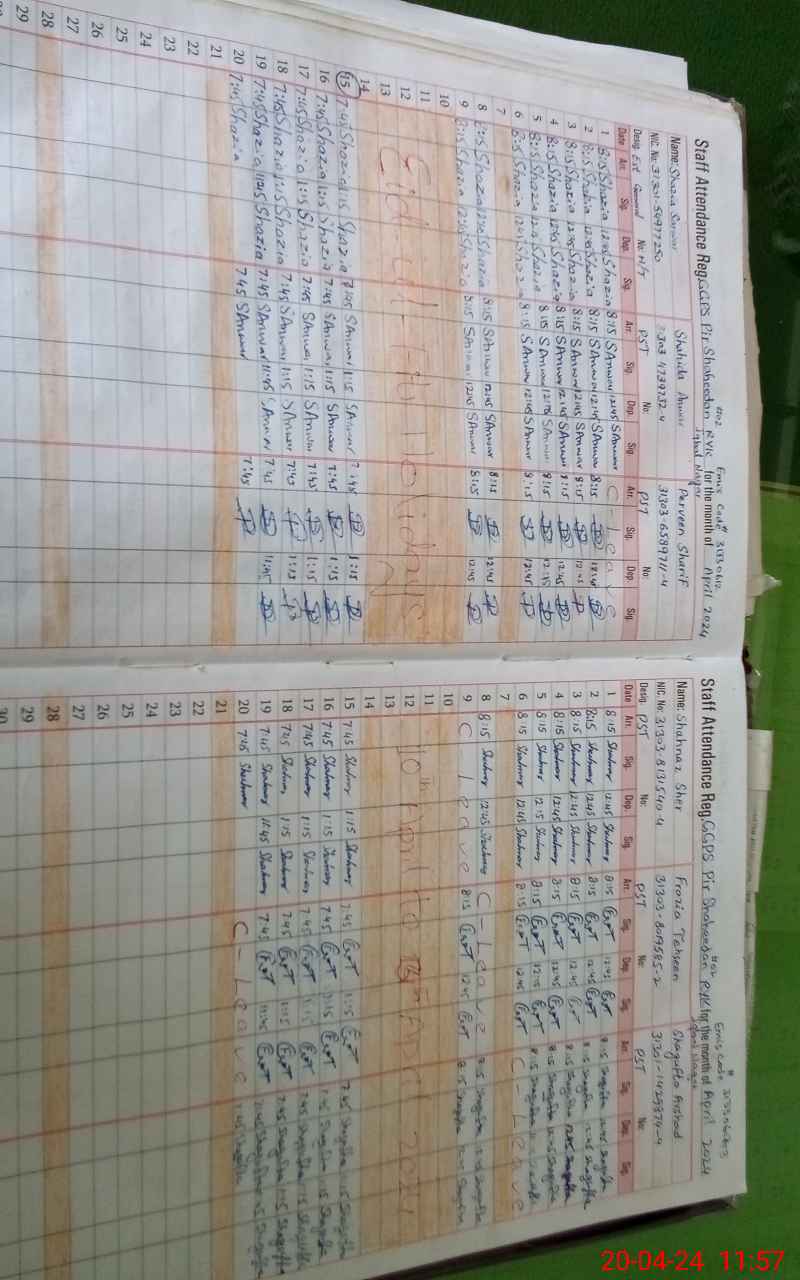 Staff Attendance Reg. GGPS Pir Shaheedan RYK for the month of April 2024
#02 Emis Code# 31330612
Iqbal Nagar
Name: Shazia Sarwar Shahida Anwar Perveen Sharif
NIC. No: 31301-5497725 0 31303 4739732-4 31303-6589711-4
Desig. Est General No: H/T PST No: PST No:
Date Arr. Sig. Dep. Sig. Arr. Sig. Dep. Sig. Arr. Sig. Dep. Sig.
1 8:15 Shazia 12:45 Shazia 8:15 SAnwar 12:45 SAnwar C-Leave
2 8:15 Shazia 12:45 Shazia 8:15 SAnwar 12:45 SAnwar 8:15 12:45
3 8:15 Shazia 12:45 Shazia 8:15 SAnwar 12:45 SAnwar 8:15 12:45
4 8:15 Shazia 12:45 Shazia 8:15 SAnwar 12:45 SAnwar 8:15 12:45
5 8:15 Shazia 12:15 Shazia 8:15 SAnwar 12:15 SAnwar 8:15 12:15
6 8:15 Shazia 12:45 Shazia 8:15 SAnwar 12:45 SAnwar 8:15 12:45
7
8 8:15 Shazia 12:45 Shazia 8:15 SAnwar 12:45 SAnwar 8:15 12:45
9 8:15 Shazia 12:45 Shazia 8:15 SAnwar 12:45 SAnwar 8:15 12:45
10
11
12 Eid-ul-Fitr Holidays
13
14
15 7:45 Shazia 1:15 Shazia 7:45 SAnwar 1:15 SAnwar 7:45 1:15
16 7:45 Shazia 1:15 Shazia 7:45 SAnwar 1:15 SAnwar 7:45 1:15
17 7:45 Shazia 1:15 Shazia 7:45 SAnwar 1:15 SAnwar 7:45 1:15
18 7:45 Shazia 1:15 Shazia 7:45 SAnwar 1:15 SAnwar 7:45 1:15
19 7:45 Shazia 11:45 Shazia 7:45 SAnwar 11:45 SAnwar 7:45 11:45
20 7:45 Shazia 7:45 SAnwar 7:45
21
22
23
24
25
26
27
28
29
Staff Attendance Reg. GGPS Pir Shaheedan RYK for the month of April 2024
#02 Emis Code #
Iqbal Nagar
Name: Shahnaz Sher Frozia Tehseen Shagufta Arshad
NIC. No: 31303-8131540-4 31303-8019585-2 31301-1429874-4
Desig. PST No: PST No: PST No:
Date Arr. Sig. Dep. Sig. Arr. Sig. Dep. Sig. Arr. Sig. Dep. Sig.
1 8:15 Shahnaz 12:45 Shahnaz 8:15 12:45 8:15 Shagufta 12:45 Shagufta
2 8:15 Shahnaz 12:45 Shahnaz 8:15 12:45 8:15 Shagufta 12:45 Shagufta
3 8:15 Shahnaz 12:45 Shahnaz 8:15 12:45 8:15 Shagufta 12:45 Shagufta
4 8:15 Shahnaz 12:45 Shahnaz 8:15 12:45 8:15 Shagufta 12:45 Shagufta
5 8:15 Shahnaz 12:15 Shahnaz 8:15 12:15 8:15 Shagufta 12:15 Shagufta
6 8:15 Shahnaz 12:45 Shahnaz 8:15 12:45 C-Leave
7
8 8:15 Shahnaz 12:45 Shahnaz C-Leave 8:15 Shagufta 12:45 Shagufta
9 C Leave 8:15 12:45 8:15 Shagufta 12:45 Shagufta
10
11
12 10th April to April 2024
13
14
15 7:45 Shahnaz 1:15 Shahnaz 7:45 1:15 7:45 Shagufta 1:15 Shagufta
16 7:45 Shahnaz 1:15 Shahnaz 7:45 1:15 7:45 Shagufta 1:15 Shagufta
17 7:45 Shahnaz 1:15 Shahnaz 7:45 1:15 7:45 Shagufta 1:15 Shagufta
18 7:45 Shahnaz 1:15 Shahnaz 7:45 1:15 7:45 Shagufta 1:15 Shagufta
19 7:45 Shahnaz 11:45 Shahnaz 7:45 11:45 7:45 Shagufta 11:45 Shagufta
20 7:45 Shahnaz C-Leave 7:45 Shagufta
21
22
23
24
25
26
27
28
29
30
20-04-24 11:57